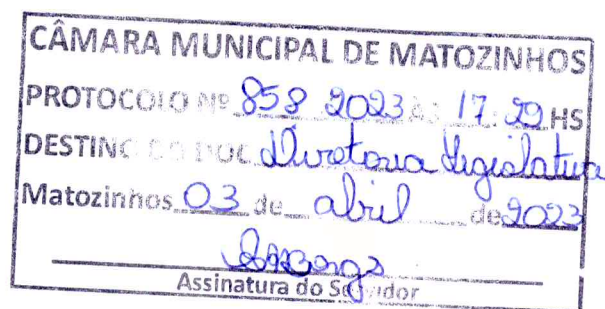 CÂMARA MUNICIPAL DE MATOZINHOS
PROTOCOLO Nº 858 2023 ÀS 17:29 HS
DESTINO DO DOC Diretoria Legislativa
Matozinhos 03 de abril de 2023
Assinatura do Servidor